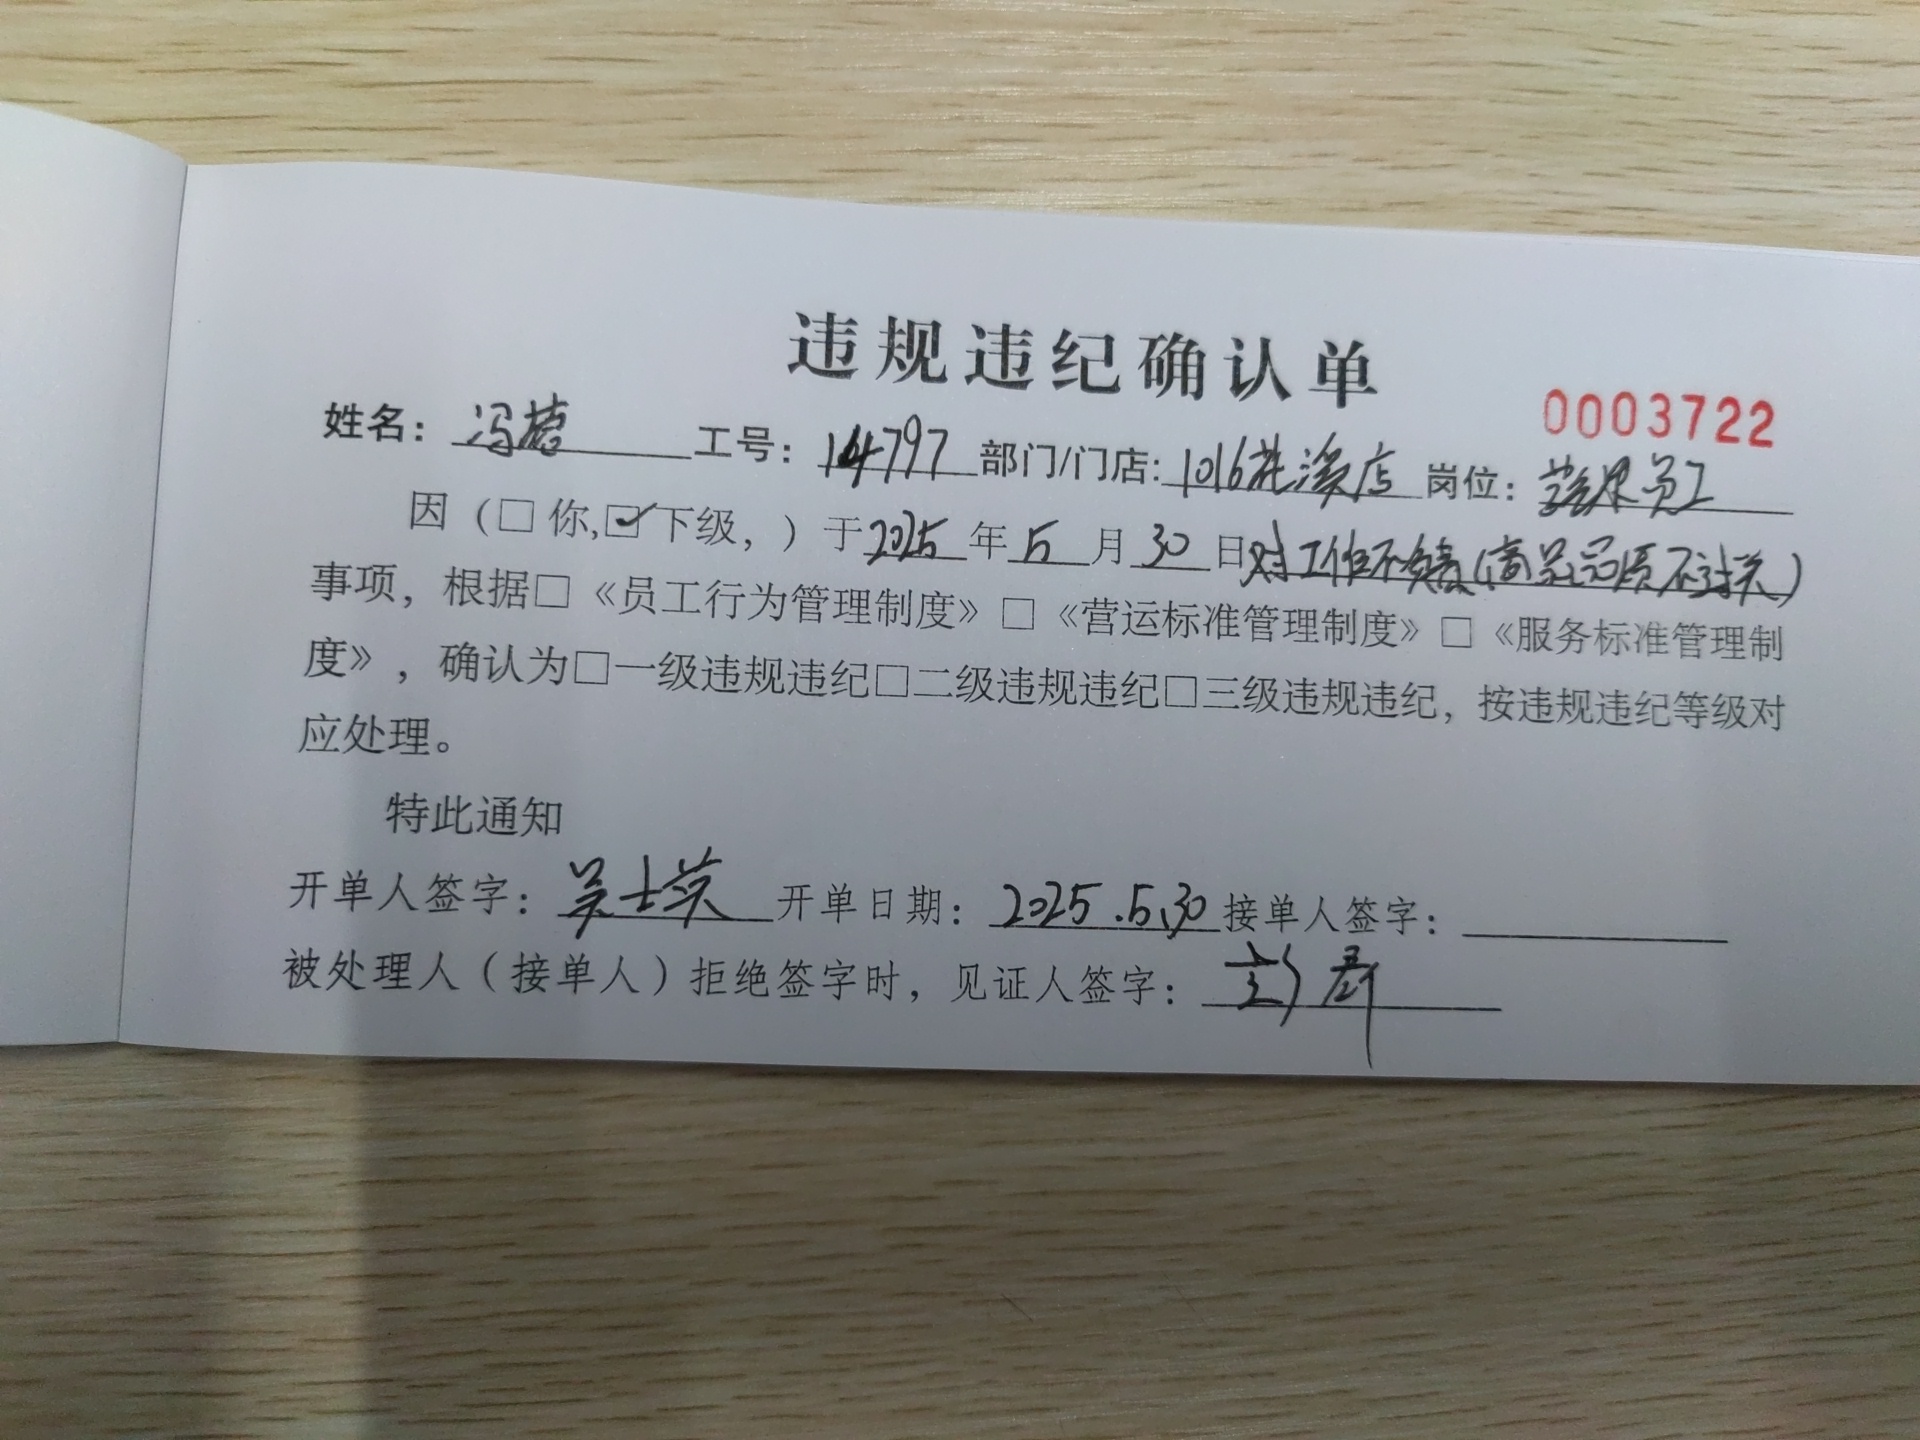 违规违纪确认单
0003722
姓名：冯 工号：14797 部门/门店：1016花溪店 岗位：蔬果员工
因（□你，☑下级，）于2025年5月30日对工作不负责（商品品质不过关）
事项，根据□《员工行为管理制度》□《营运标准管理制度》□《服务标准管理制
度》，确认为□一级违规违纪□二级违规违纪□三级违规违纪，按违规违纪等级对
应处理。
特此通知
开单人签字：吴士英 开单日期：2025.5.30 接单人签字：
被处理人（接单人）拒绝签字时，见证人签字：